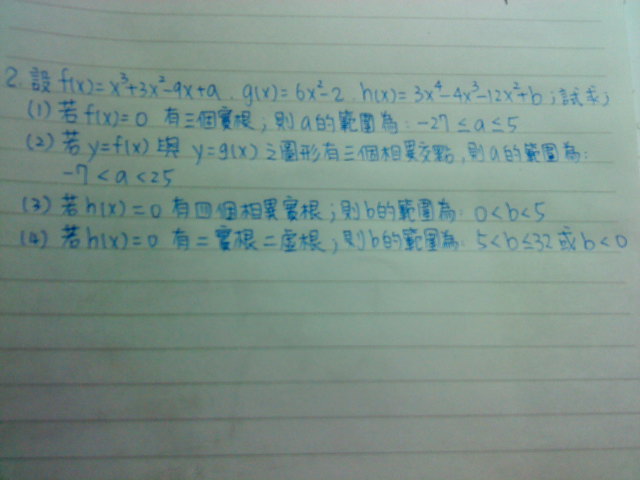 2. 設 f(x)=x³+3x²-9x+a、g(x)=6x²-2、h(x)=3x⁴-4x³-12x²+b；試求；
(1) 若 f(x)=0 有三個實根；則 a 的範圍為：-27≤a≤5
(2) 若 y=f(x) 與 y=g(x) 之圖形有三個相異交點，則 a 的範圍為：
-7<a<25
(3) 若 h(x)=0 有四個相異實根；則 b 的範圍為：0<b<5
(4) 若 h(x)=0 有二實根二虛根；則 b 的範圍為：5<b≤32 或 b<0